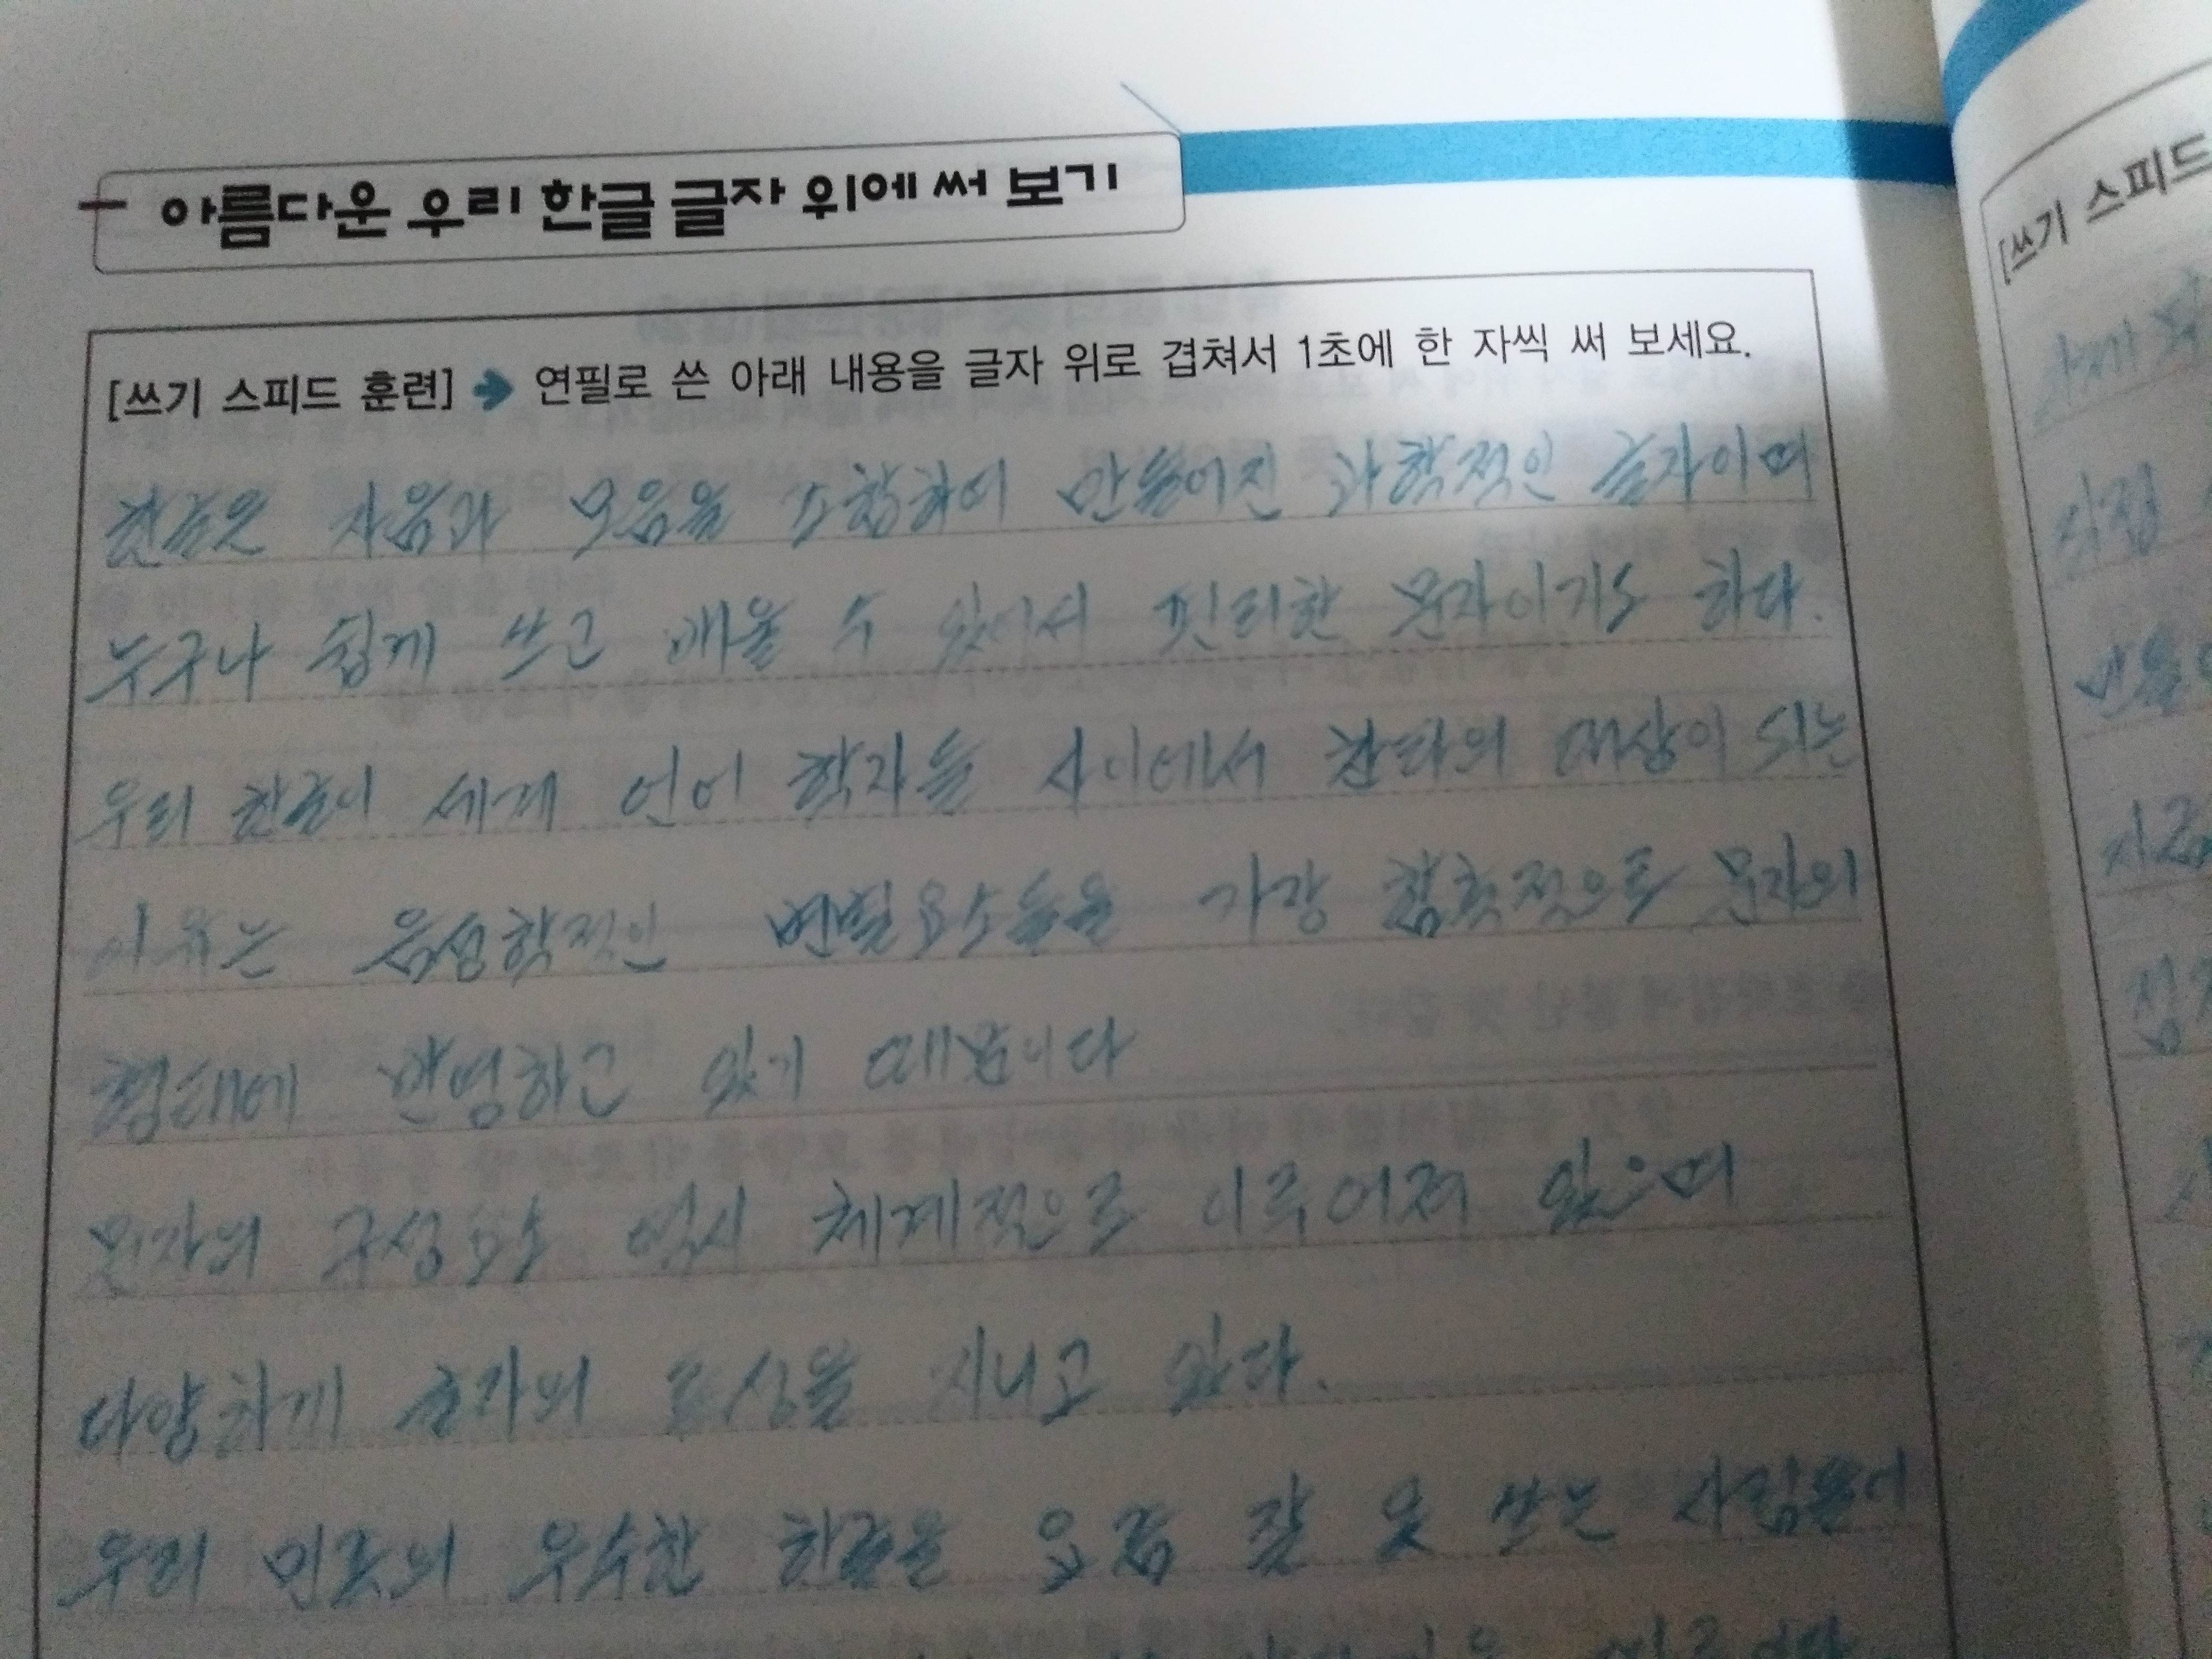 아름다운 우리 한글 글자 위에 써 보기
[쓰기 스피드 훈련] ➔ 연필로 쓴 아래 내용을 글자 위로 겹쳐서 1초에 한 자씩 써 보세요.
한글은 자음과 모음을 조합하여 만들어진 과학적인 글자이며
누구나 쉽게 쓰고 배울 수 있어서 편리한 문자이기도 하다.
우리 한글이 세계 언어 학자들 사이에서 찬탄의 대상이 되는
이유는 음성학적인 변별요소들을 가장 함축적으로 문자의
형태에 반영하고 있기 때문이다
문자의 구성요소 역시 체계적으로 이루어져 있으며
다양하게 글자의 표상을 지니고 있다.
우리 민족의 우수한 한글을 요즘 잘 못 쓰는 사람들이
[쓰기 스피드